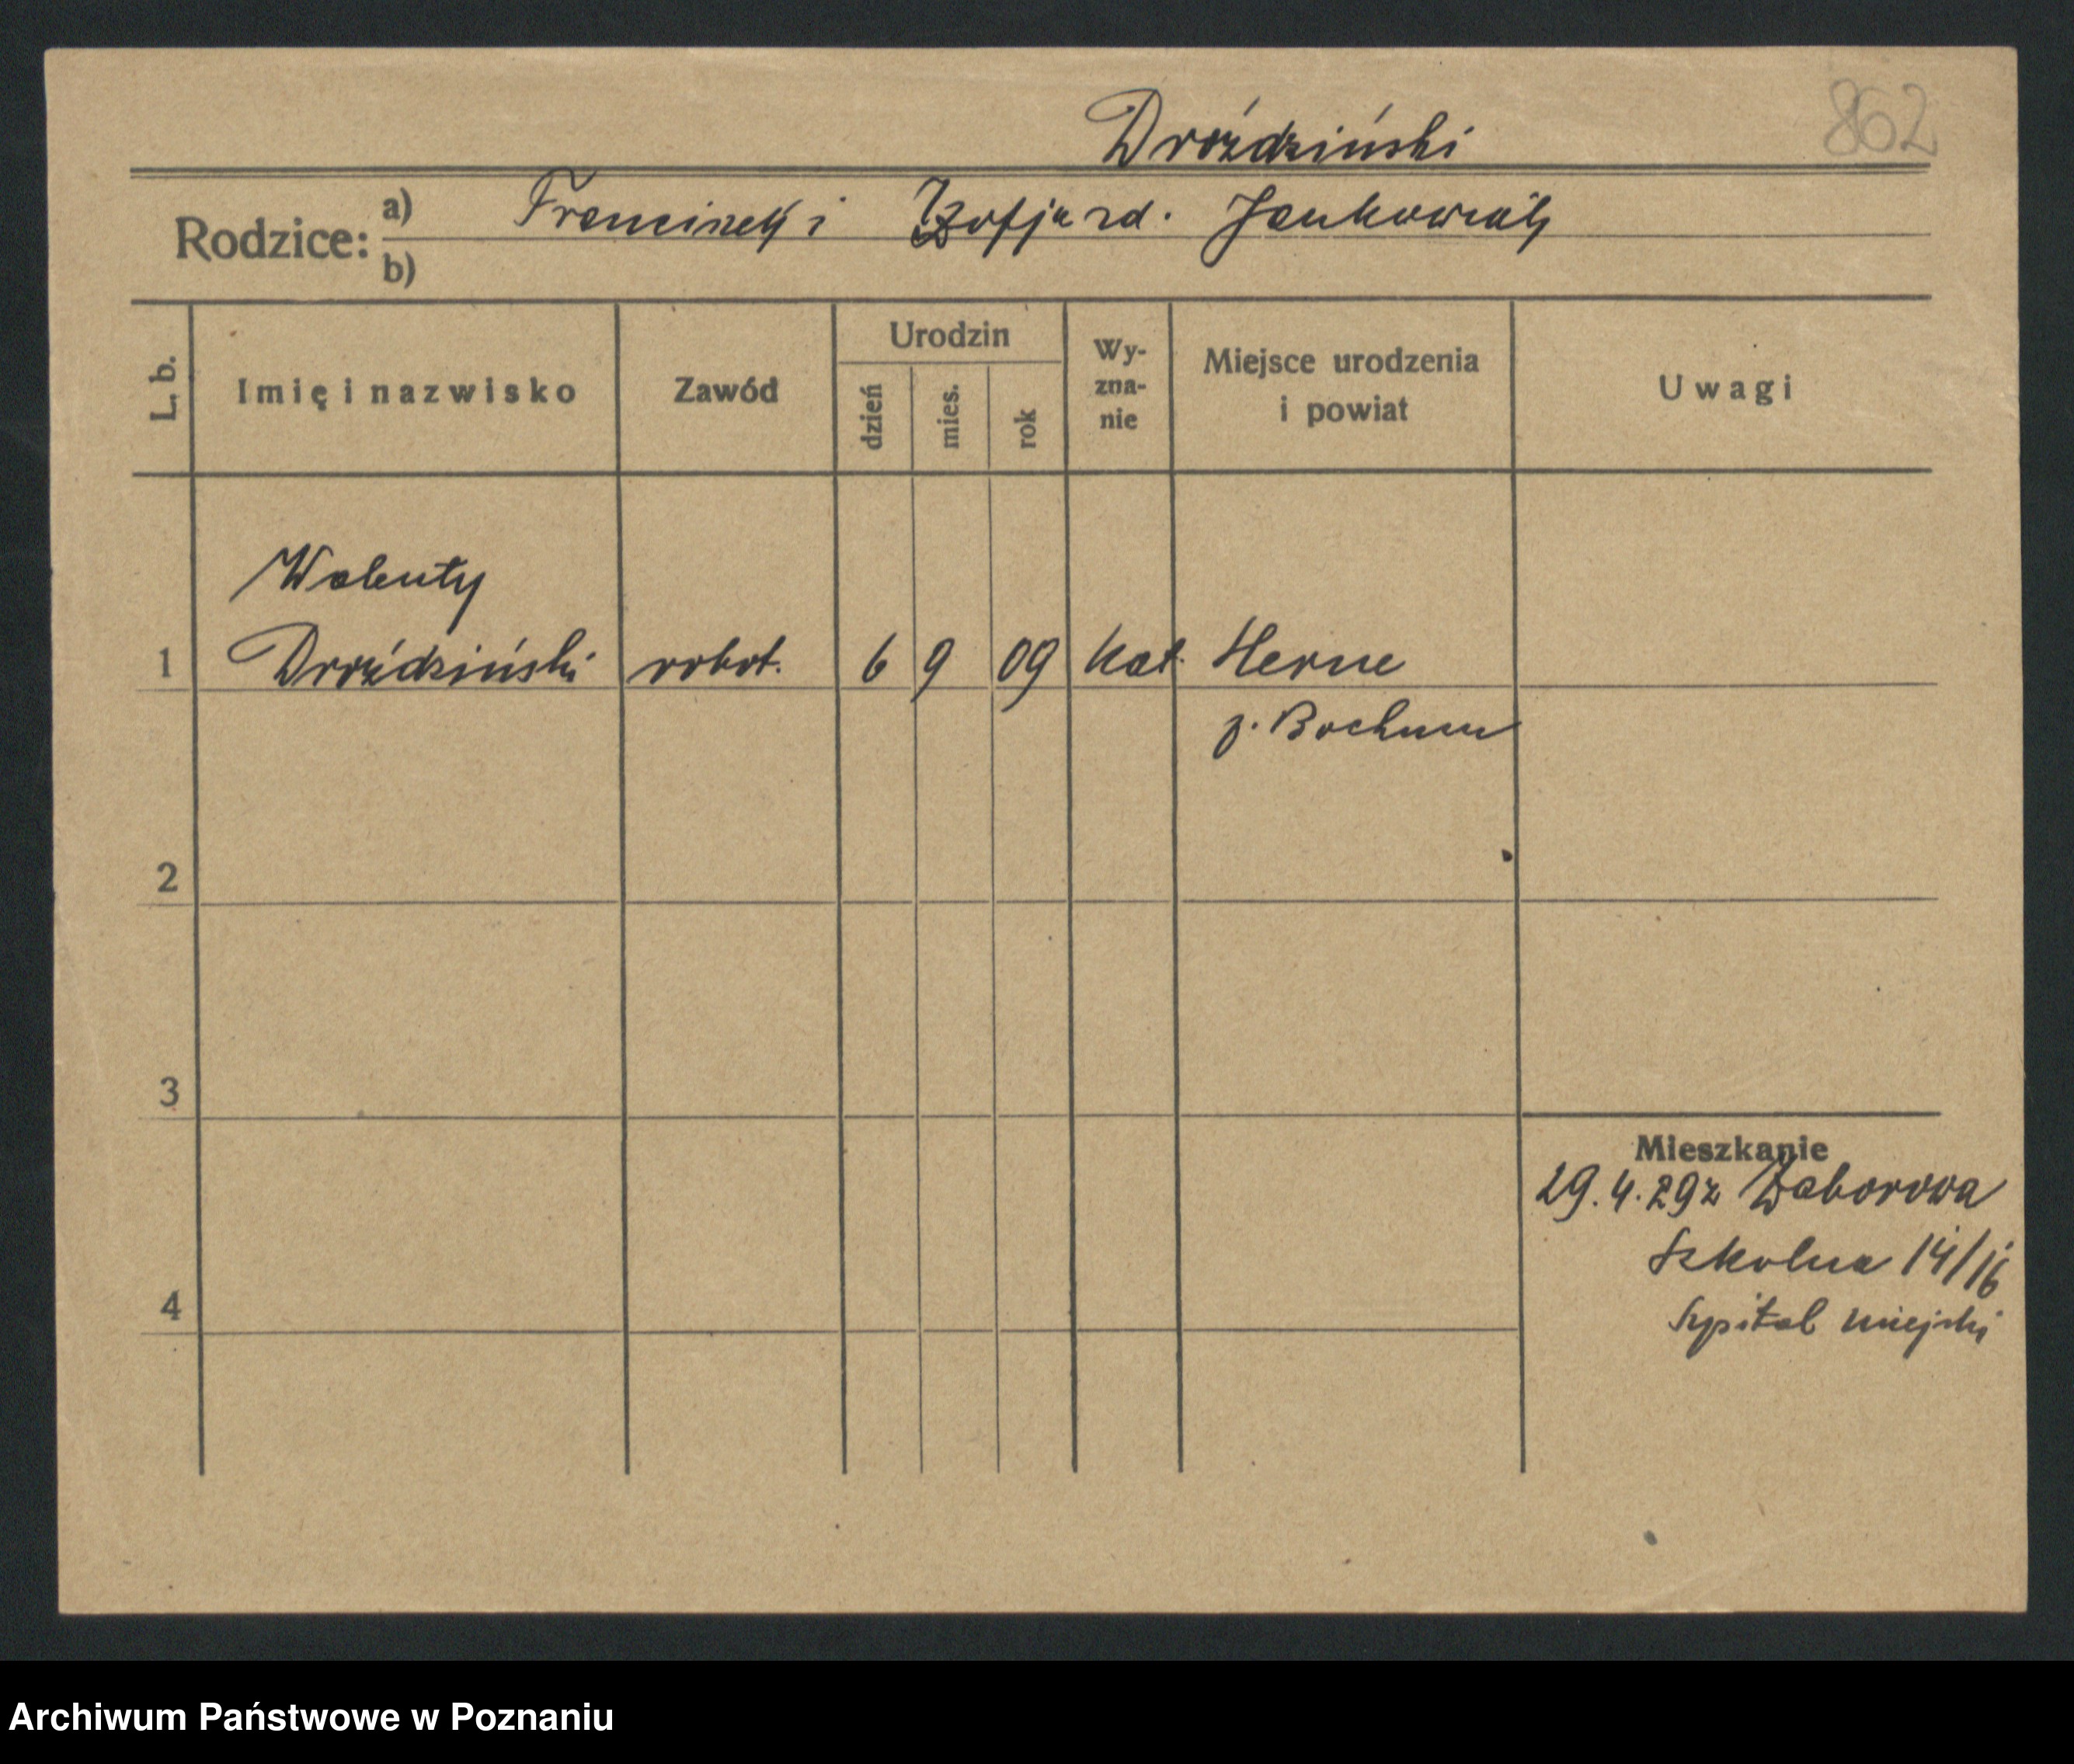 862
Dróździński
Rodzice: a) Franciszek i Zofja zd. Jankowiak
b)
L. b. Imię i nazwisko Zawód Urodzin dzień mies. rok Wy-zna-nie Miejsce urodzenia i powiat Uwagi
Walenty
1 Dróździński robot. 6 9 09 kat. Herne
p. Bochum
2
3
Mieszkanie
29.4.29 z Zaborowa
Szkolna 14/16
4 Szpital miejski
Archiwum Państwowe w Poznaniu